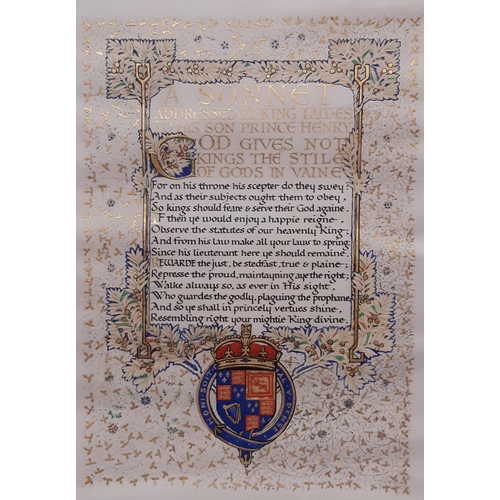 A SONNET
ADDRESSED BY KING JAMES
HIS SON PRINCE HENRY
GOD GIVES NOT
KINGS THE STILE
OF GODS IN VAINE
For on his throne his scepter do they swey:
And as their subjects ought them to obey,
So kings should feare & serve their God againe.
IF then ye would enjoy a happie reigne,
Observe the statutes of our heavenly King;
And from his Law make all your laws to spring
Since his lieutenant here ye should remaine.
REWARDE the just, be stedfast, true & plaine;
Represse the proud, maintayning aye the right;
Walke always so, as ever in His sight,
Who guardes the godly, plaguing the prophane,
And so ye shall in princely vertues shine,
Resembling right your mightie King divine.
HONI·SOIT
MAL·Y·PENSE